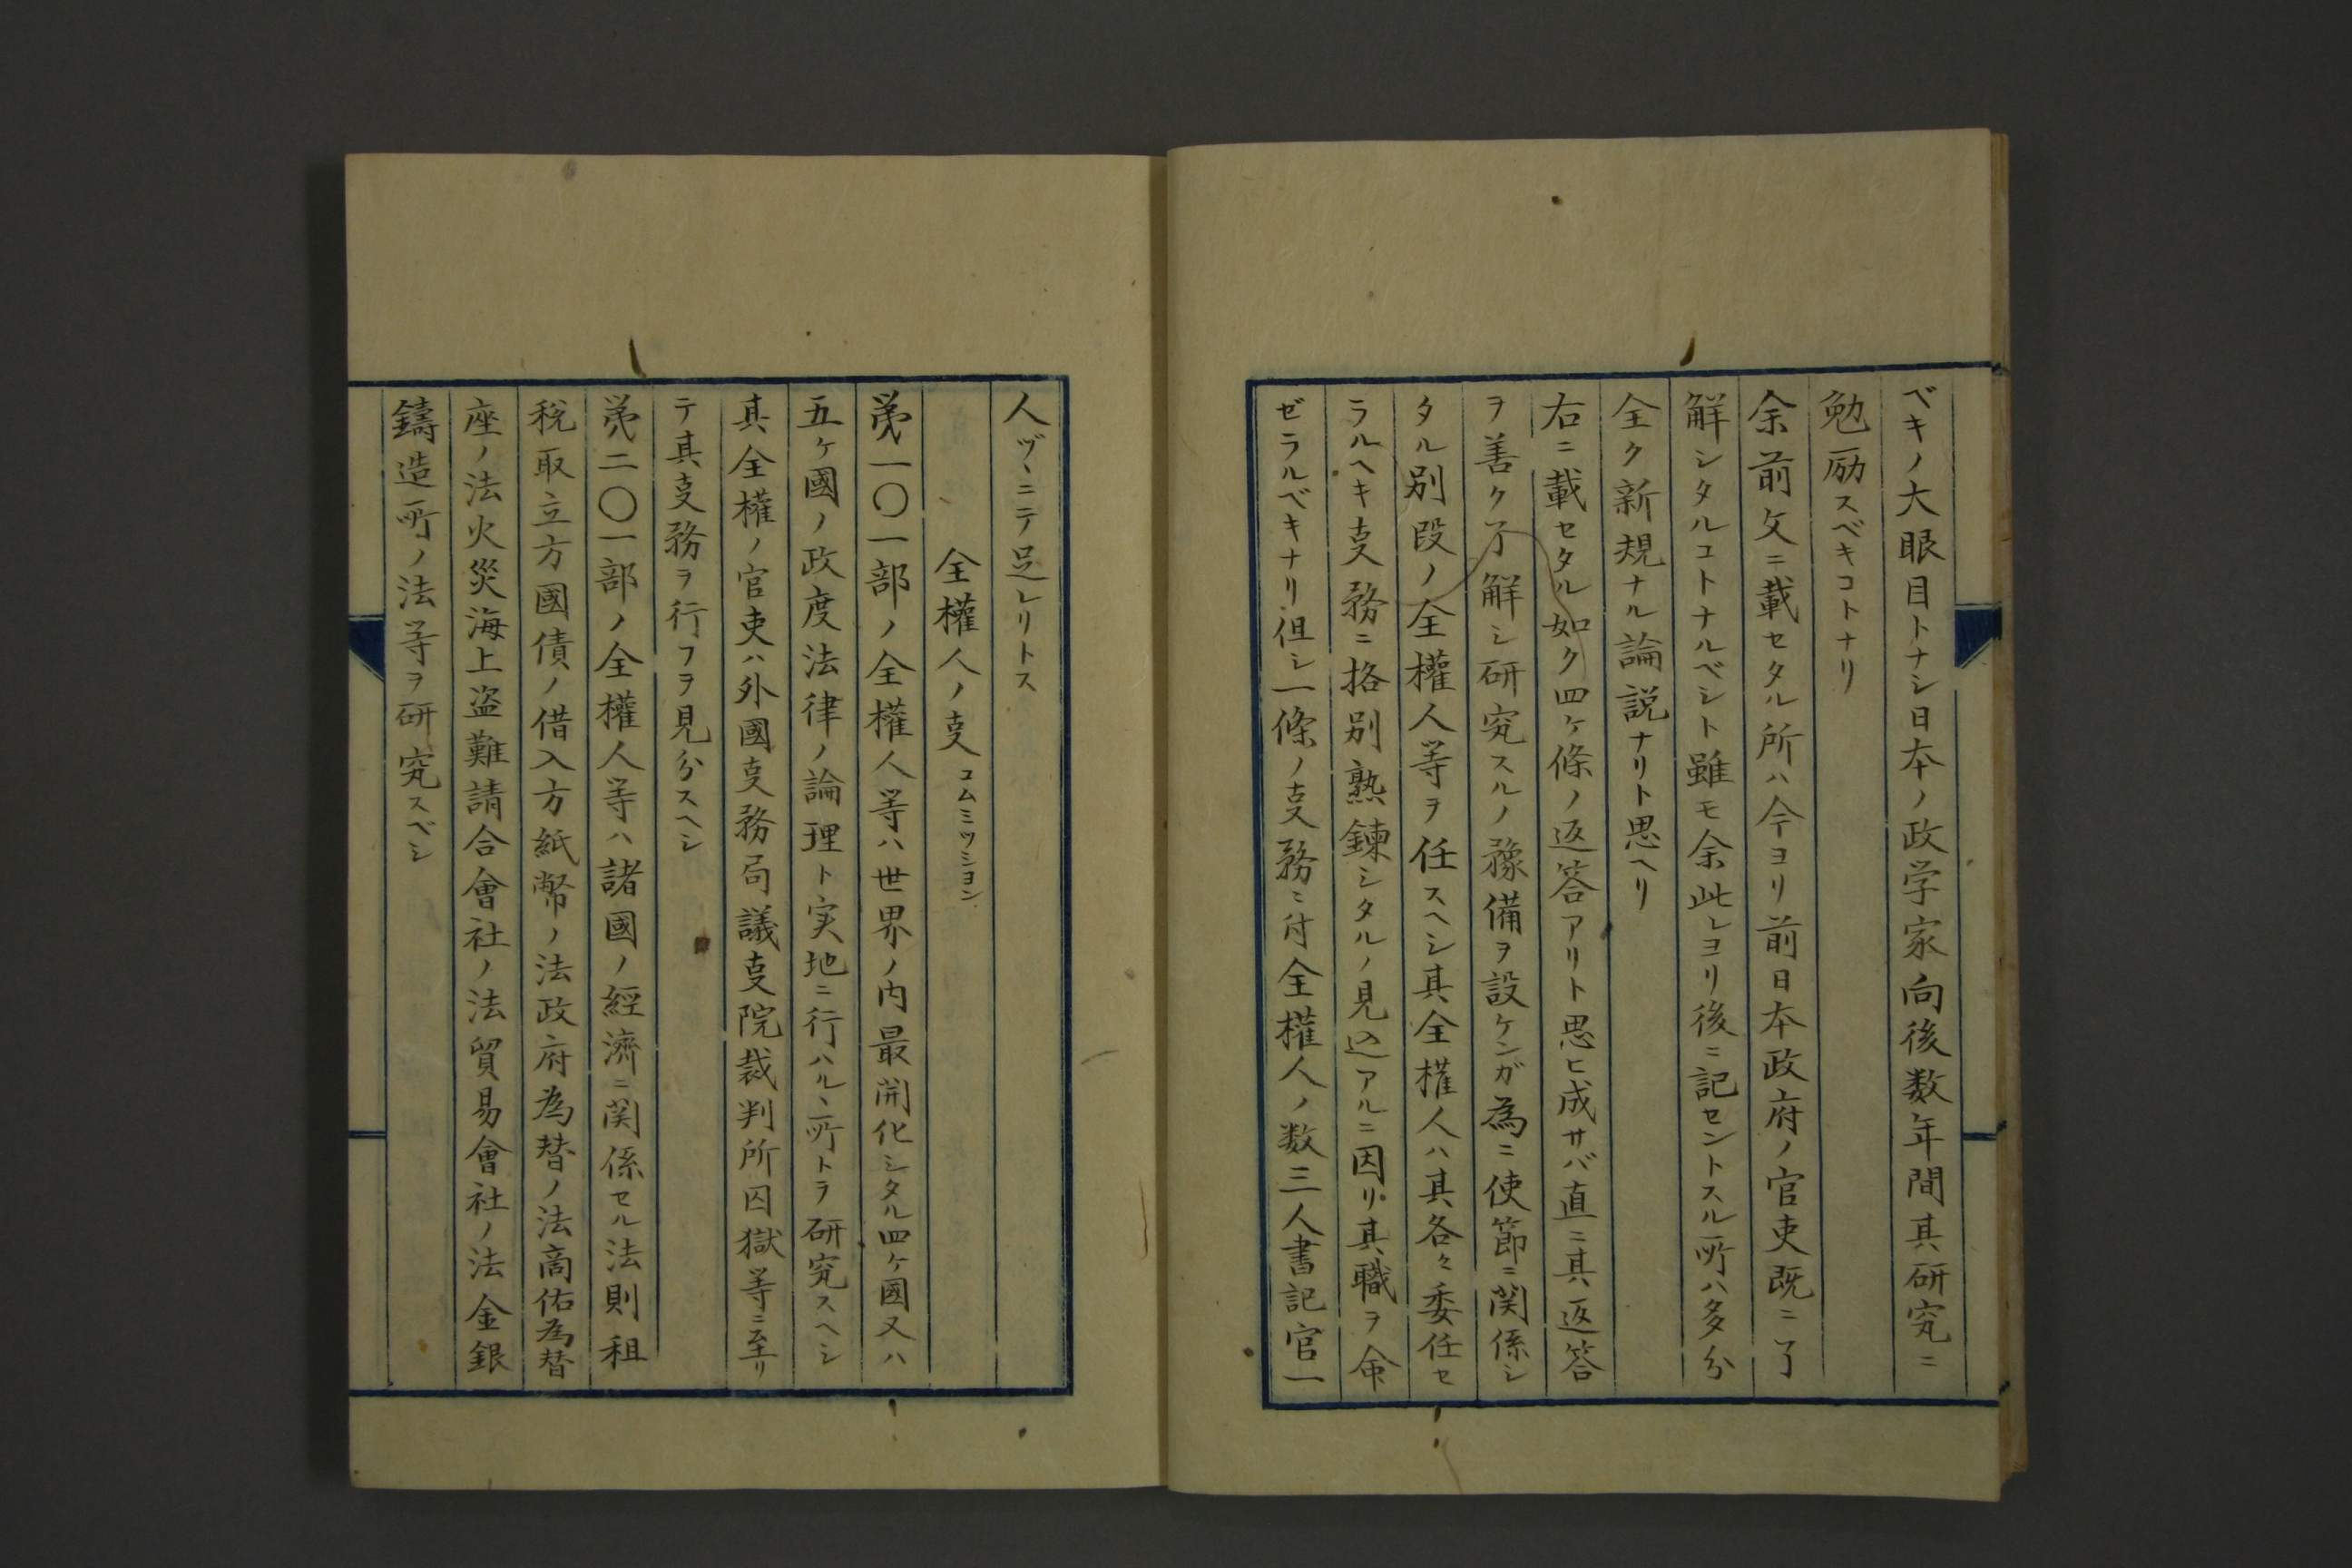 ベキノ大眼目トナシ日本ノ政学家向後数年間其研究ニ
勉励スベキコトナリ
余前文ニ載セタル所ハ今ヨリ前日本政府ノ官吏既ニ了
解シタルコトナルベシト雖モ余此レヨリ後ニ記セントスル所ハ多分
全ク新規ナル論説ナリト思ヘリ
右ニ載セタル如ク四ケ條ノ返答アリト思ヒ成サバ直ニ其返答
ヲ善ク了解シ研究スルノ豫備ヲ設ケンガ為ニ使節ニ関係シ
タル別段ノ全權人等ヲ任スヘシ其全權人ハ其各々委任セ
ラルヘキ㕝務ニ格別熟練シタルノ見込アルニ因リ其職ヲ命
ゼラルベキナリ但シ一條ノ㕝務ニ付全權人ノ数三人書記官一
人ヅヽニテ足レリトス
全權人ノ㕝コムミツシヨン
第一〇一部ノ全權人等ハ世界ノ内最開化シタル四ケ國又ハ
五ケ國ノ政度法律ノ論理ト実地ニ行ハルヽ所トヲ研究スヘシ
其全權ノ官吏ハ外國㕝務局議㕝院裁判所囚獄等ニ至リ
テ其㕝務ヲ行フヲ見分スヘシ
第二〇一部ノ全權人等ハ諸國ノ經濟ニ関係セル法則租
税取立方國債ノ借入方紙幣ノ法政府為替ノ法商估為替
座ノ法火災海上盗難請合會社ノ法貿易會社ノ法金銀
鑄造所ノ法等ヲ研究スベシ